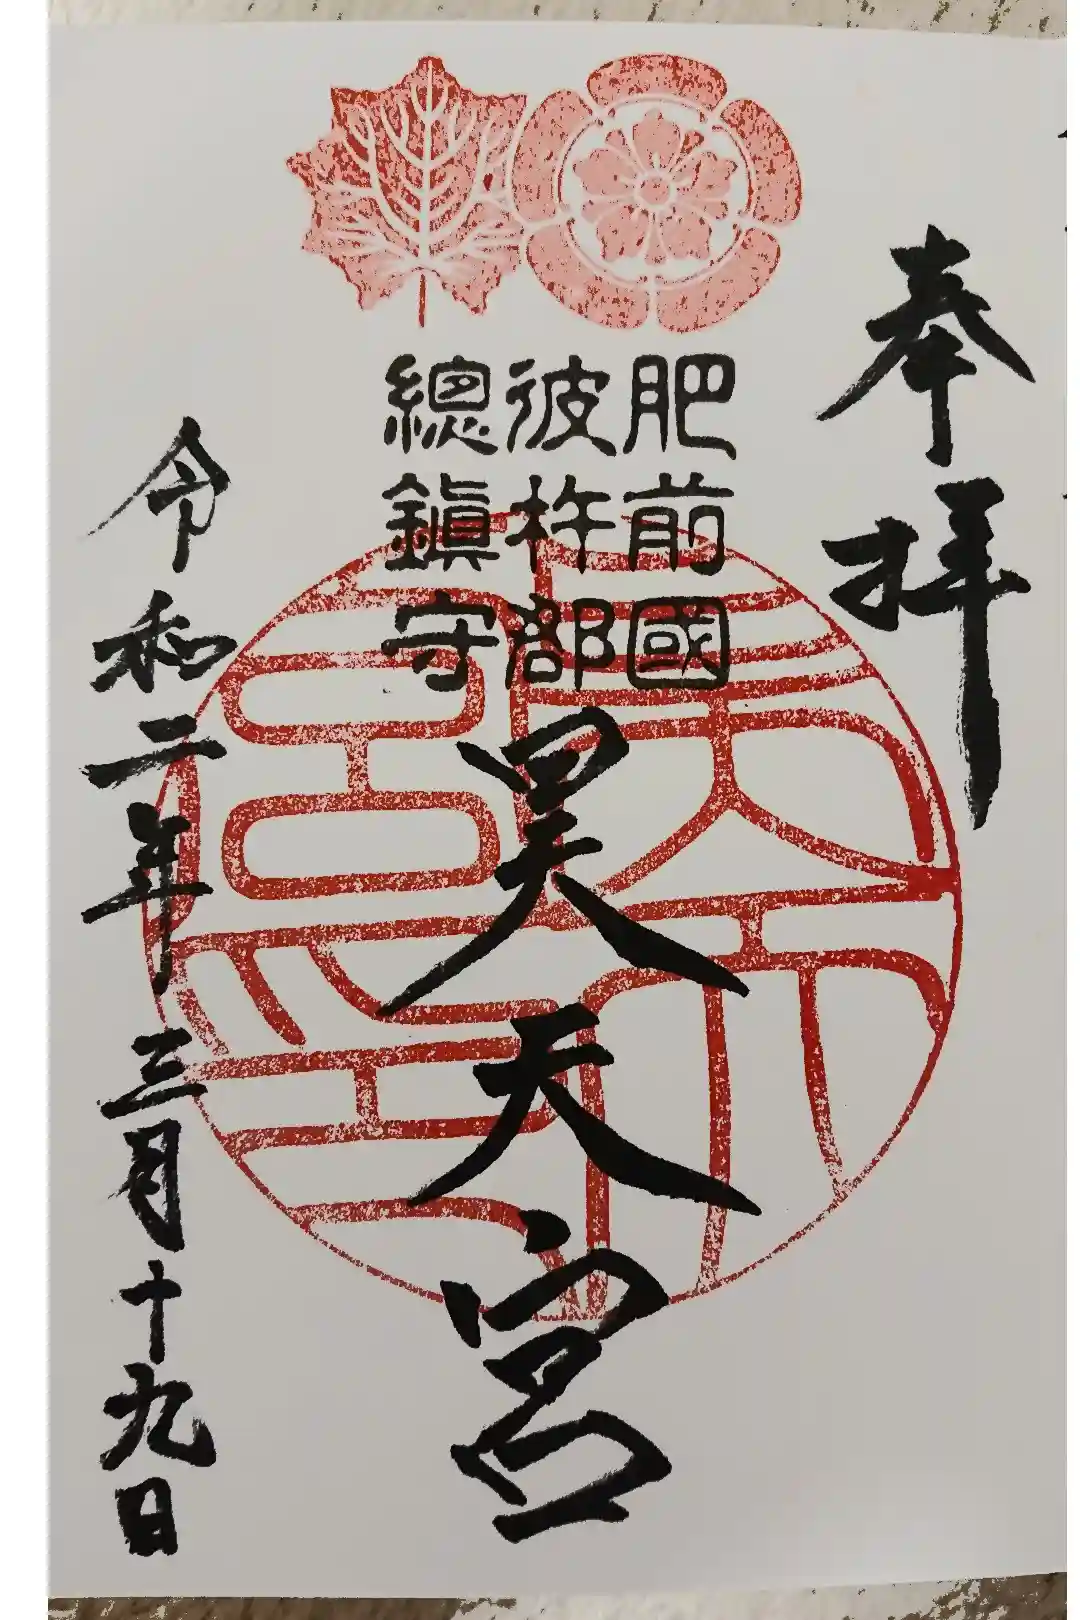 奉拝
肥前國
彼杵郡
總鎮守
昊天宮
令和二年三月十九日